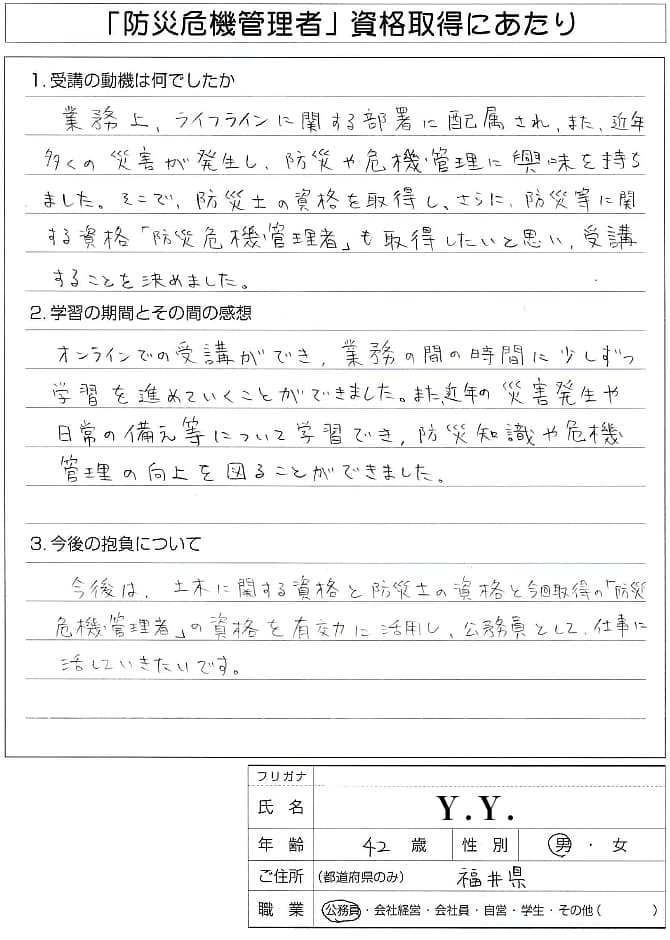 「防災危機管理者」資格取得にあたり
1. 受講の動機は何でしたか
業務上、ライフラインに関する部署に配属され、また、近年
多くの災害が発生し、防災や危機管理に興味を持ち
ました。そこで、防災士の資格を取得し、さらに、防災等に関
する資格「防災危機管理者」も取得したいと思い、受講
することを決めました。
2. 学習の期間とその間の感想
オンラインでの受講ができ、業務の間の時間に少しずつ
学習を進めていくことができました。また、近年の災害発生や
日常の備え等について学習でき、防災知識や危機
管理の向上を図ることができました。
3. 今後の抱負について
今後は、土木に関する資格と防災士の資格と今回取得の「防災
危機管理者」の資格を有効に活用し、公務員として、仕事に
活していきたいです。
フリガナ
氏名 Y.Y.
年齢 42 歳 性別 男・女
ご住所 (都道府県のみ) 福井県
職業 公務員・会社経営・会社員・自営・学生・その他( )